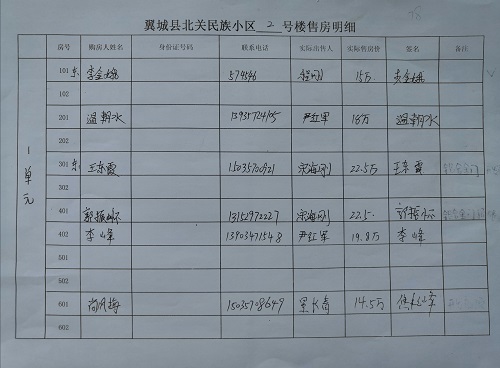 翼城县北关民族小区 2 号楼售房明细
房号 购房人姓名 身份证号码 联系电话 实际出售人 实际售房价 签名 备注
1单元
101 东 李金娥 15万
102
201 温朝水 尹红军 16万 温朝水
202
301 东 王东霞 15035700921 宋海刚 22.5万 王东霞
302
401 郭振怀 13152972227 宋海刚 22.5
402 李峰 13903471548 尹红军 19.8万 李峰
501
502
601 尚风梅 15035708649 景长青 14.5万
602